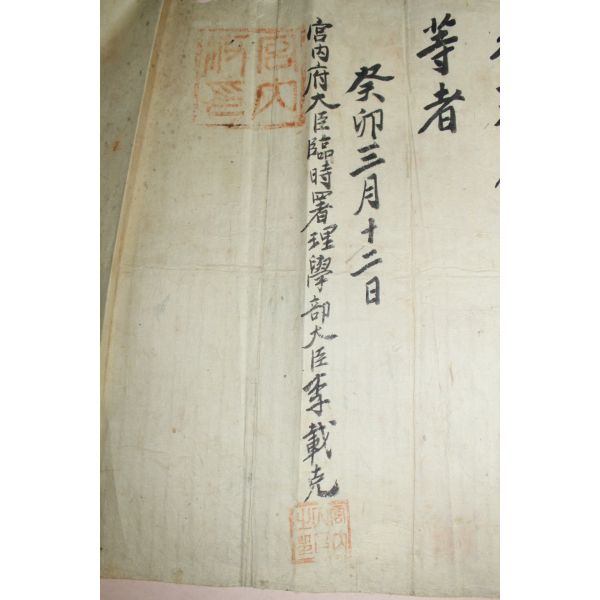 等者
癸卯三月十二日
宮內府大臣臨時署理學部大臣李載克
宮內府印